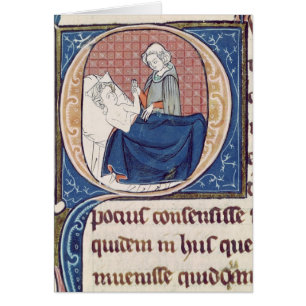 pocius consensisse
quidem in hus que
muenisse quidem